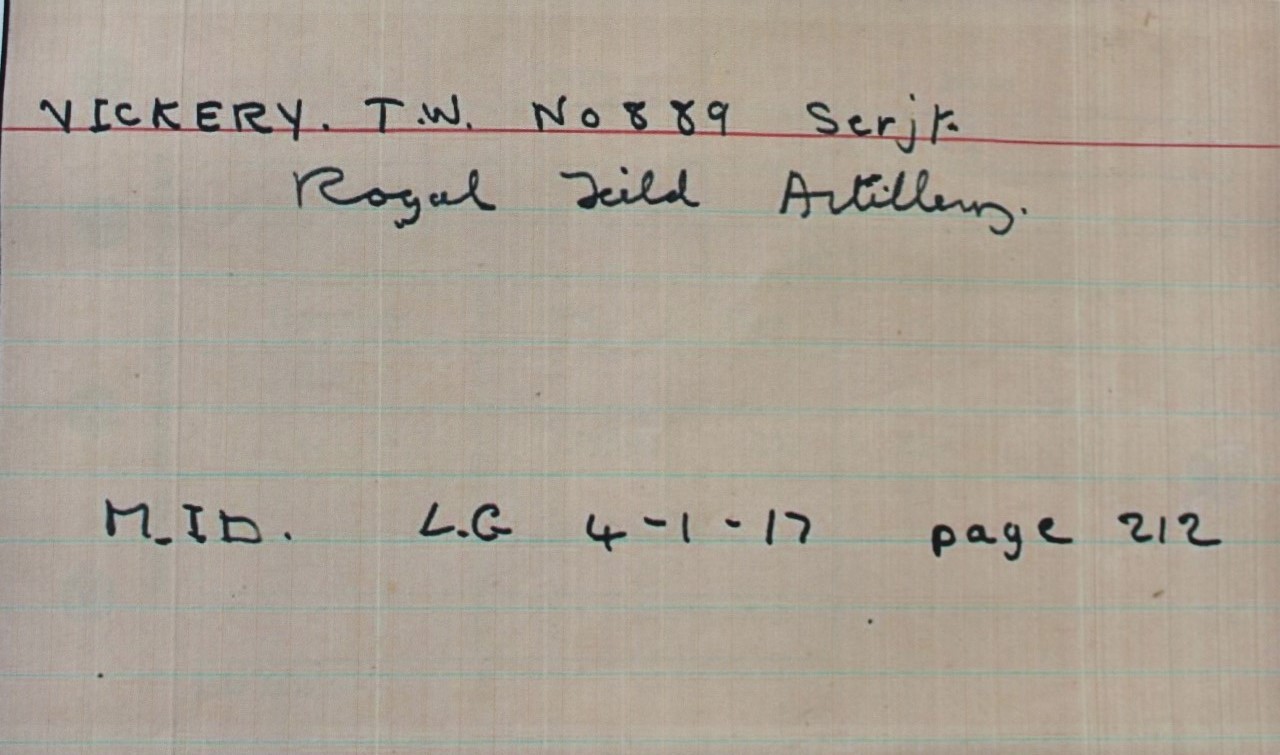 VICKERY. T.W. No 889 Serjt.
Royal Feild Artillery.
M.I.D. L.G 4-1-17 page 212